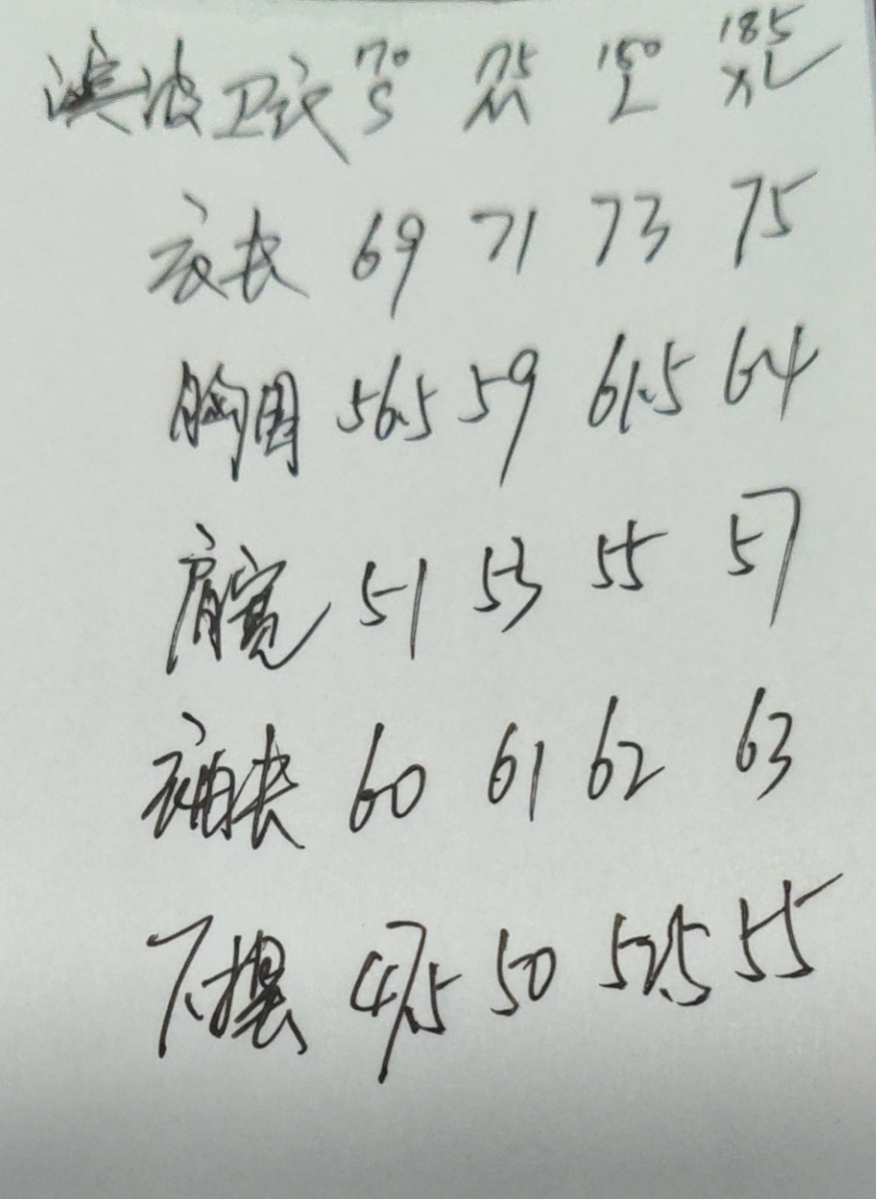 170 175 180 185
波卫衣 S M L XL
衣长 69 71 73 75
胸围 56.5 59 61.5 64
肩宽 51 53 55 57
袖长 60 61 62 63
下摆 47.5 50 52.5 55